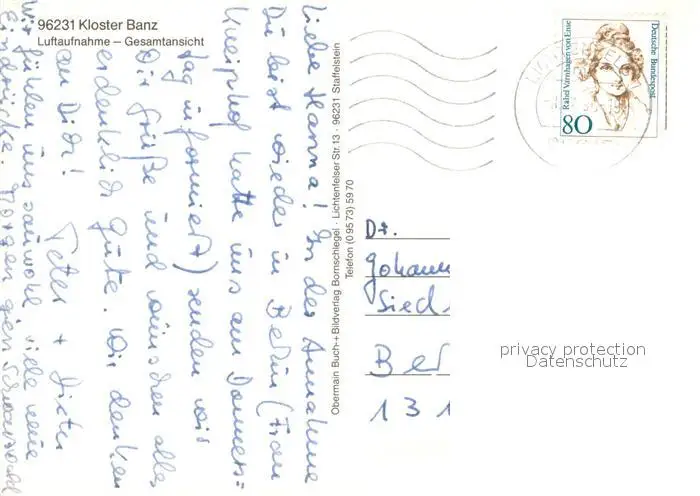 96231 Kloster Banz
Luftaufnahme – Gesamtansicht
Liebe Hanna! In der Annahme
Du bist wieder in Berlin (Frau
Kneiphof hatte uns am Donners=
tag informiert) senden wir
Dir Grüße und wünschen alles
erdenklich Gute. Wir denken
an Dich!
Peter + Dieter
Wir fühlen uns sauwohl, viele neue
Eindrücke. Morgen gen
Obermain Buch-+ Bildverlag Bornschlegel · Lichtenfelser Str. 13 · 96231 Staffelstein
Telefon (0 95 73) 59 70
Deutsche Bundespost
Rahel Varnhagen von Ense
80
Dr.
Johann
Sied
Ber
131
privacy protection
Datenschutz